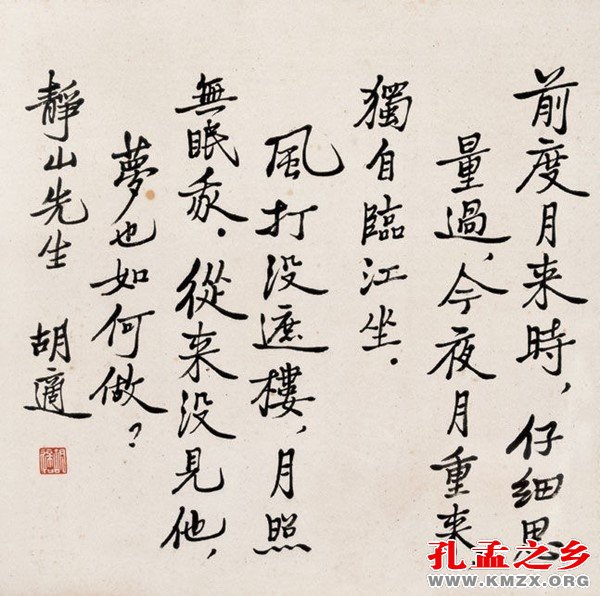 前度月来時，仔細思
量過，今夜月重来，
獨自臨江坐．
風打没遮樓，月照
無眠我．從来没見他，
夢也如何做？
靜山先生
胡適
孔孟之乡
WWW.KMZX.ORG